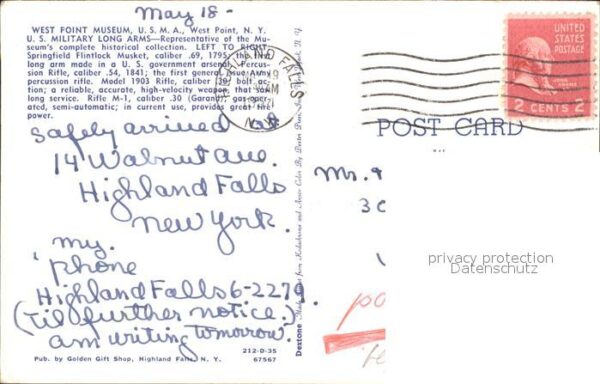 May 18 -
WEST POINT MUSEUM, U. S. M. A., West Point, N. Y.
U. S. MILITARY LONG ARMS—Representative of the Mu-
seum's complete historical collection. LEFT TO RIGHT
Springfield Flintlock Musket, caliber .69, 1795; the first
long arm made in a U. S. government arsenal. Percus-
sion Rifle, caliber .54, 1841; the first general issue Army
percussion rifle. Model 1903 Rifle, caliber .30, bolt ac-
tion; a reliable, accurate, high-velocity weapon that saw
long service. Rifle M-1, caliber .30 (Garand), gas-oper-
ated, semi-automatic; in current use, provides great fire
power.
safely arrived at
14 Walnut Ave.
Highland Falls
New York.
my.
phone
Highland Falls 6-2270
('til further notice.)
am writing tomorrow.
212-D-35
Pub. by Golden Gift Shop, Highland Falls, N. Y. 67567
Dextone
HIGHLAND FALLS
AM
N.Y.
UNITED STATES
POSTAGE
2 CENTS 2
POST CARD
privacy protection
Datenschutz